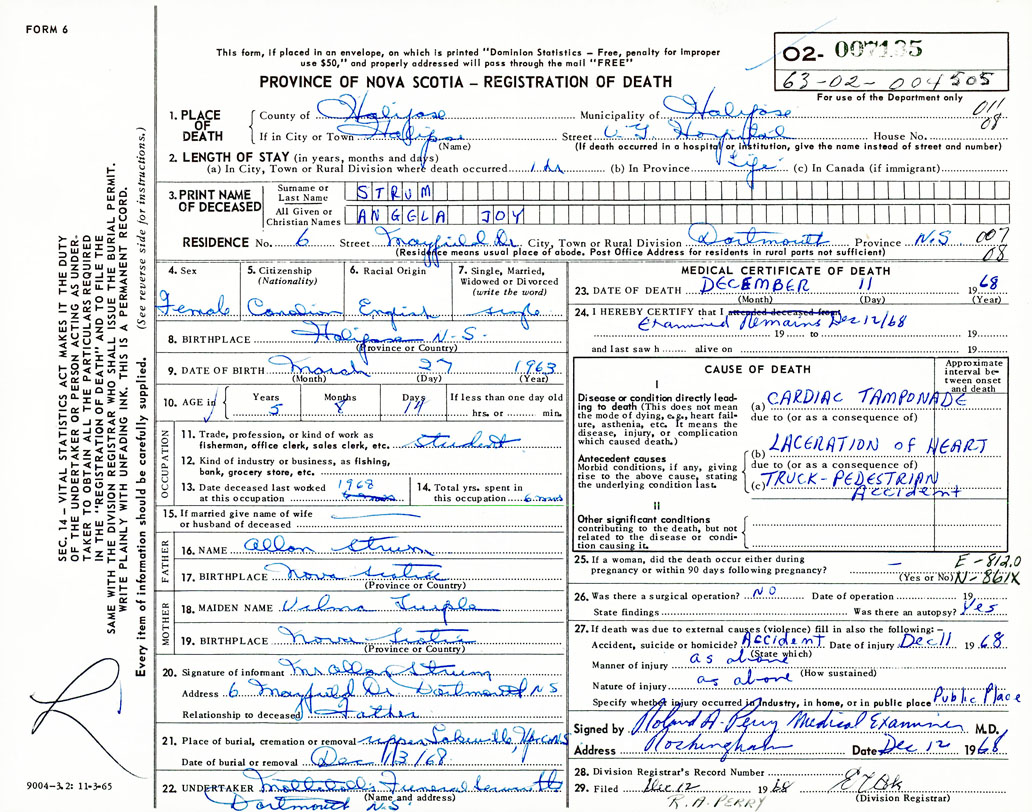 FORM 6
This form, if placed in an envelope, on which is printed "Dominion Statistics – Free, penalty for improper
use $50," and properly addressed will pass through the mail "FREE"
PROVINCE OF NOVA SCOTIA – REGISTRATION OF DEATH
02- 007135
63-02-004505
For use of the Department only
011
08
1. PLACE OF DEATH
County of Halifax Municipality of Halifax
If in City or Town Halifax Street V G Hospital House No.
(Name) (If death occurred in a hospital or institution, give the name instead of street and number)
2. LENGTH OF STAY (in years, months and days)
(a) In City, Town or Rural Division where death occurred 1 hr (b) In Province Life (c) In Canada (if immigrant)
3. PRINT NAME OF DECEASED
Surname or Last Name STRUM
All Given or Christian Names ANGELA JOY
RESIDENCE No. 6 Street Mayfield Dr City, Town or Rural Division Dartmouth Province N.S 007
08
(Residence means usual place of abode. Post Office Address for residents in rural parts not sufficient)
4. Sex
Female
5. Citizenship (Nationality)
Canadian
6. Racial Origin
English
7. Single, Married, Widowed or Divorced (write the word)
single
8. BIRTHPLACE Halifax N-S-
(Province or Country)
9. DATE OF BIRTH March 27 1963
(Month) (Day) (Year)
10. AGE in Years 5 Months 8 Days 14 If less than one day old
hrs. or min.
OCCUPATION
11. Trade, profession, or kind of work as
fisherman, office clerk, sales clerk, etc. student
12. Kind of industry or business, as fishing,
bank, grocery store, etc.
13. Date deceased last worked at this occupation 1968
14. Total yrs. spent in this occupation 6 mos
15. If married give name of wife
or husband of deceased
FATHER
16. NAME Allan Strum
17. BIRTHPLACE Nova Scotia
(Province or Country)
MOTHER
18. MAIDEN NAME Velma Turple
19. BIRTHPLACE Nova Scotia
(Province or Country)
20. Signature of informant Mr Allan Strum
Address 6 Mayfield Dr Dartmouth NS
Relationship to deceased Father
21. Place of burial, cremation or removal upper Lakeville,
Date of burial or removal Dec 13/68
22. UNDERTAKER Funeral
(Name and address)
Dartmouth N.S
MEDICAL CERTIFICATE OF DEATH
23. DATE OF DEATH DECEMBER 11 1968
(Month) (Day) (Year)
24. I HEREBY CERTIFY that I attended deceased from
Examined Remains Dec 12/68
19 to 19
and last saw h alive on 19
CAUSE OF DEATH
Approximate interval between onset and death
I
Disease or condition directly leading to death (This does not mean the mode of dying, e.g., heart failure, asthenia, etc. It means the disease, injury, or complication which caused death.)
(a) CARDIAC TAMPONADE
due to (or as a consequence of)
Antecedent causes
Morbid conditions, if any, giving rise to the above cause, stating the underlying condition last.
(b) LACERATION OF HEART
due to (or as a consequence of)
(c) TRUCK-PEDESTRIAN
Accident
II
Other significant conditions
contributing to the death, but not related to the disease or condition causing it.
25. If a woman, did the death occur either during
pregnancy or within 90 days following pregnancy? –
(Yes or No)
E-812.0
N-861X
26. Was there a surgical operation? NO Date of operation 19
State findings Was there an autopsy? Yes
27. If death was due to external causes (violence) fill in also the following:–
Accident, suicide or homicide? Accident Date of injury Dec 11 1968
(State which)
Manner of injury as above
(How sustained)
Nature of injury as above
Specify whether injury occurred in Industry, in home, or in public place Public Place
Signed by Roland A. Perry Medical Examiner M.D.
Address Rockingham Date Dec 12 1968
28. Division Registrar's Record Number
29. Filed Dec 12 1968
(Division Registrar)
R. A. PERRY
SEC. 14 – VITAL STATISTICS ACT MAKES IT THE DUTY
OF THE UNDERTAKER OR PERSON ACTING AS UNDER-
TAKER TO OBTAIN ALL THE PARTICULARS REQUIRED
IN THE "REGISTRATION OF DEATH" AND TO FILE THE
SAME WITH THE DIVISION REGISTRAR WHO SHALL ISSUE THE BURIAL PERMIT.
WRITE PLAINLY WITH UNFADING INK. THIS IS A PERMANENT RECORD.
Every item of information should be carefully supplied. (See reverse side for instructions.)
9004-3.2: 11-3-65